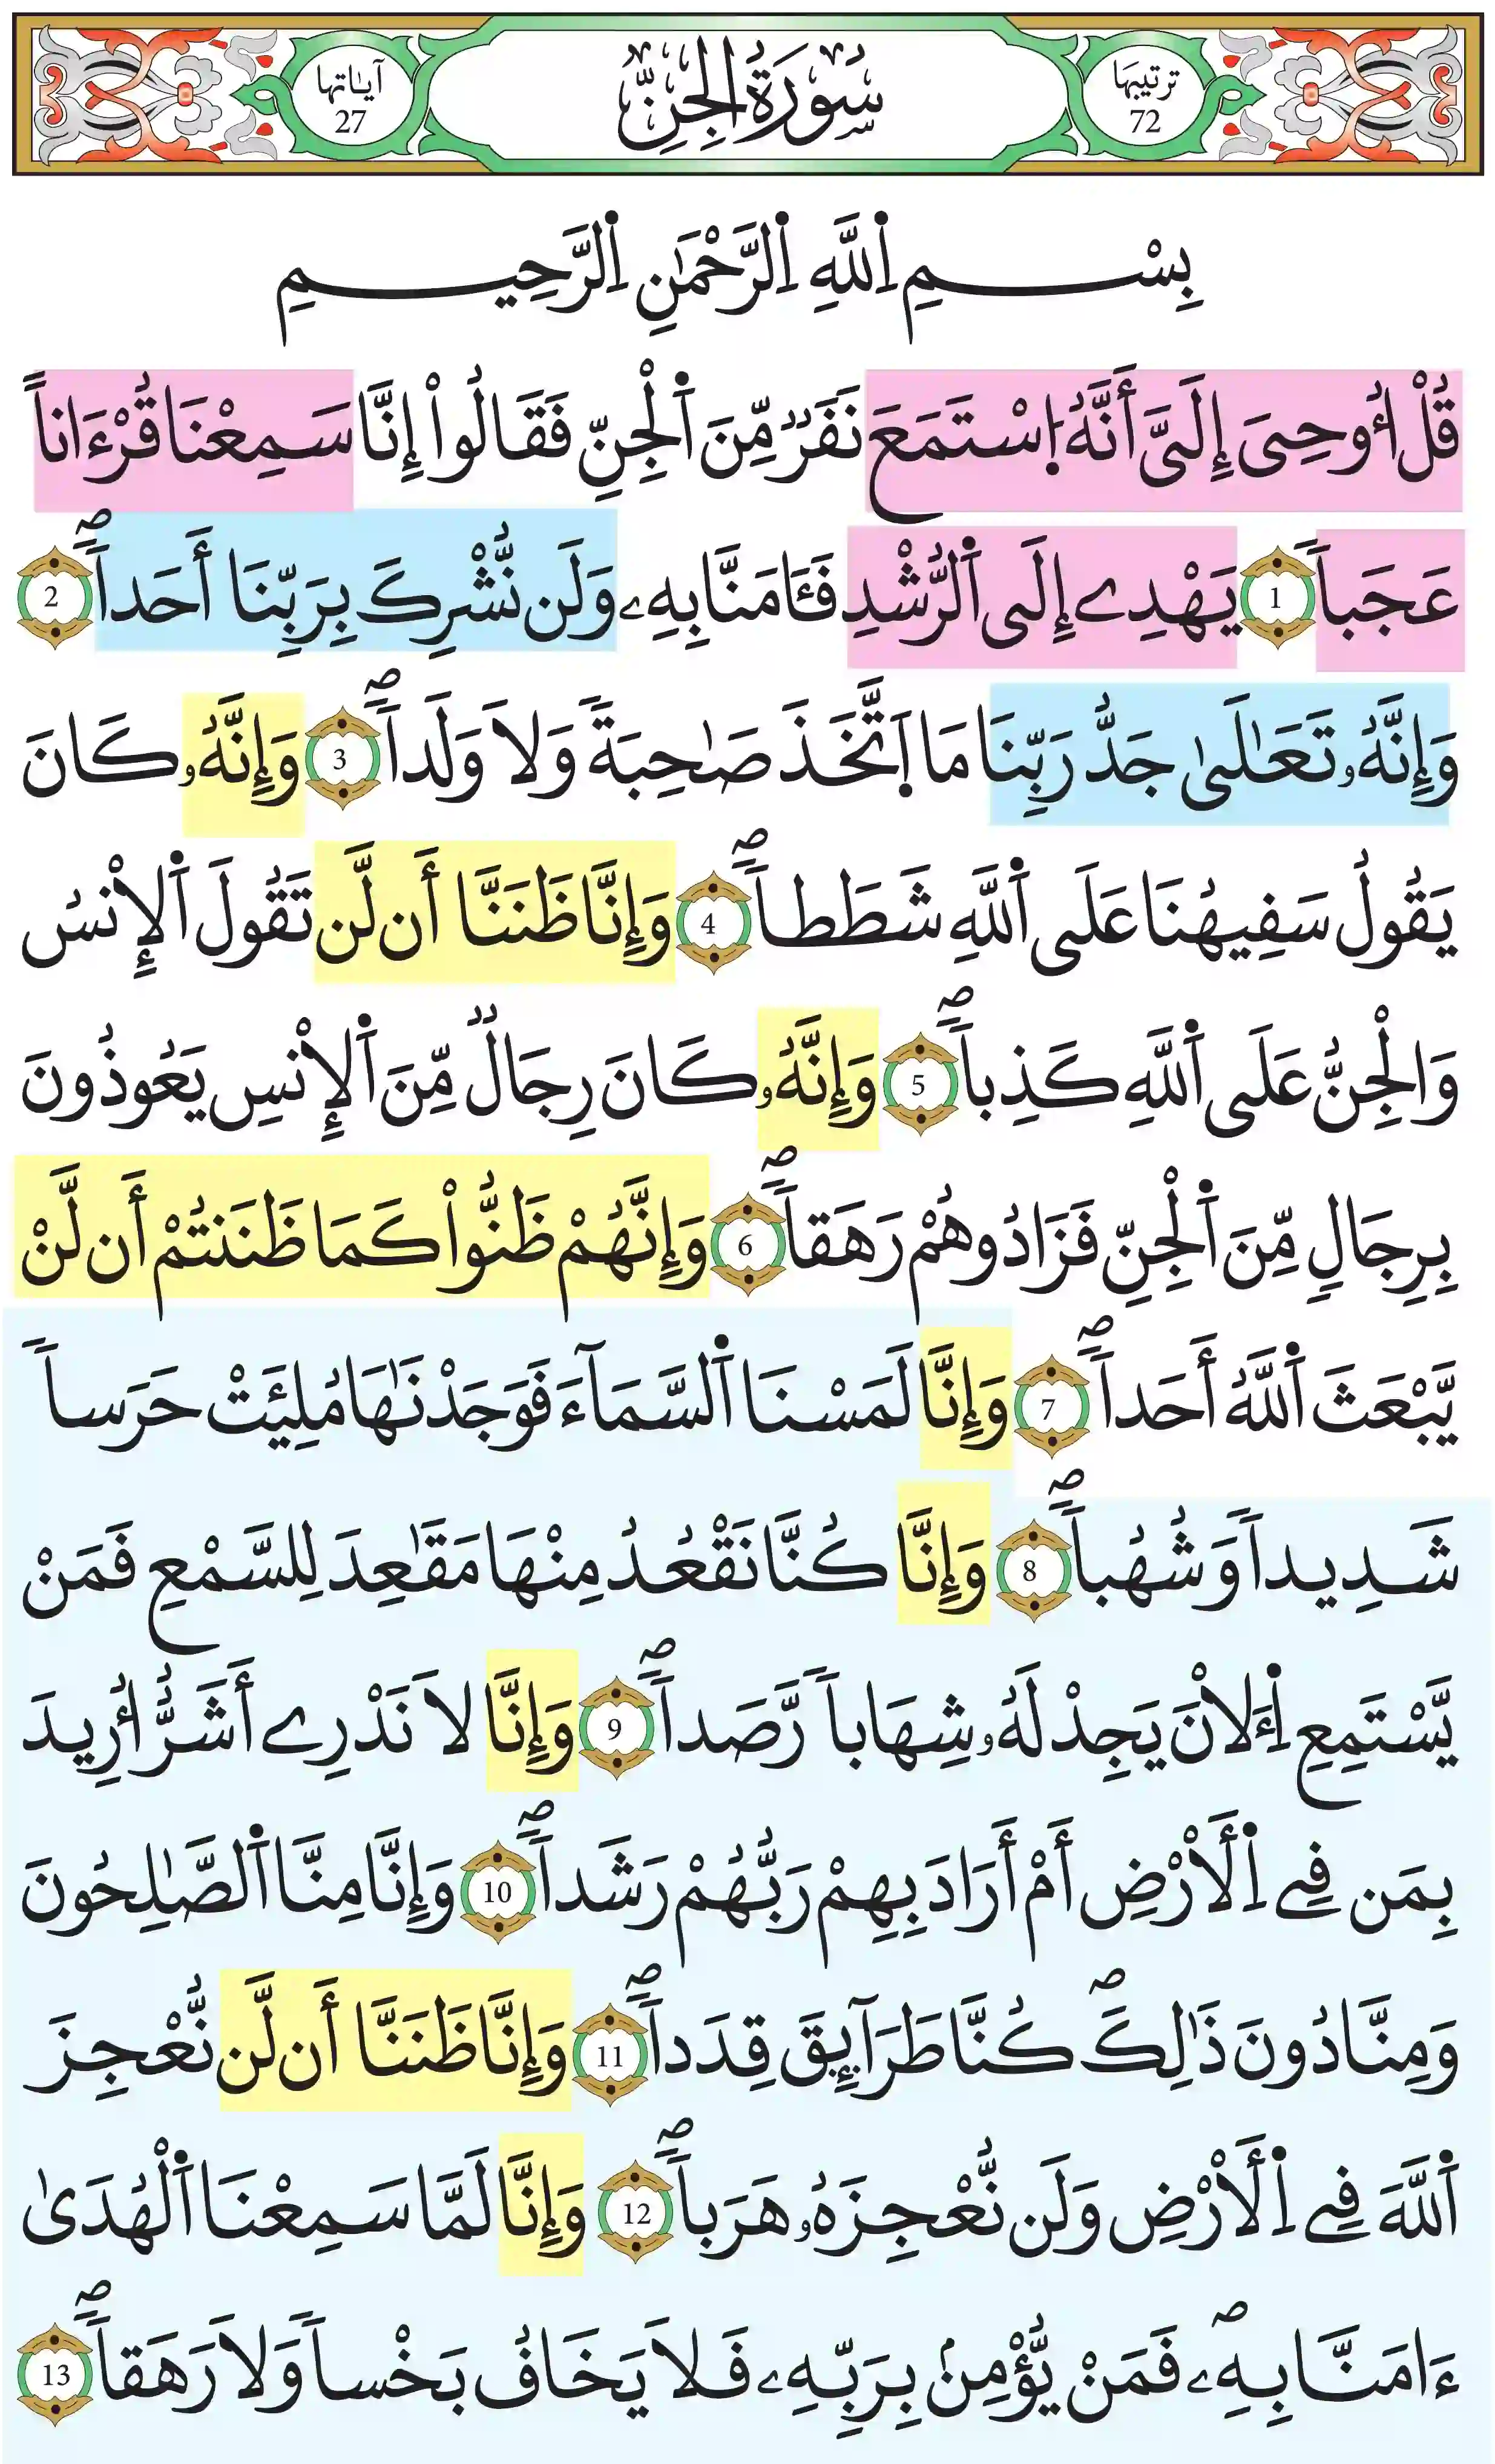 ترتيبها
72
سُورَةُ الجِنِّ
آيَاتها
27
بِسْمِ اِ۬للَّهِ اِ۬لرَّحْمَٰنِ اِ۬لرَّحِيمِ
قُلْ ا۟وحِيَ إِلَيَّ أَنَّهُ اُ۪سْتَمَعَ نَفَرٞ مِّنَ اَ۬لْجِنِّ فَقَالُوٓاْ إِنَّا سَمِعْنَا قُرْءَاناً
عَجَباٗ 1 يَهْدِے إِلَى اَ۬لرُّشْدِ فَـَٔامَنَّا بِهِۦ وَلَن نُّشْرِكَ بِرَبِّنَا أَحَداٗۖ 2
وَإِنَّهُۥ تَعَٰلَىٰ جَدُّ رَبِّنَا مَا اَ۪تَّخَذَ صَٰحِبَةٗ وَلَا وَلَداٗۖ 3 وَإِنَّهُۥ كَانَ
يَقُولُ سَفِيهُنَا عَلَى اَ۬للَّهِ شَطَطاٗۖ 4 وَإِنَّا ظَنَنَّا أَن لَّن تَقُولَ اَ۬لْإِنسُ
وَالْجِنُّ عَلَى اَ۬للَّهِ كَذِباٗۖ 5 وَإِنَّهُۥ كَانَ رِجَالٞ مِّنَ اَ۬لْإِنسِ يَعُوذُونَ
بِرِجَالٖ مِّنَ اَ۬لْجِنِّ فَزَادُوهُمْ رَهَقاٗۖ 6 وَإِنَّهُمْ ظَنُّواْ كَمَا ظَنَنتُمْ أَن لَّنْ
يَّبْعَثَ اَ۬للَّهُ أَحَداٗۖ 7 وَإِنَّا لَمَسْنَا اَ۬لسَّمَآءَ فَوَجَدْنَٰهَا مُلِئَتْ حَرَساٗ
شَدِيداٗ وَشُهُباٗۖ 8 وَإِنَّا كُنَّا نَقْعُدُ مِنْهَا مَقَٰعِدَ لِلسَّمْعِ فَمَنْ
يَّسْتَمِعِ اِ۬ءَلَانَ يَجِدْ لَهُۥ شِهَاباٗ رَّصَداٗۖ 9 وَإِنَّا لَا نَدْرِے أَشَرٌّ ا۟رِيدَ
بِمَن فِے اِ۬لَأرْضِ أَمْ أَرَادَ بِهِمْ رَبُّهُمْ رَشَداٗۖ 10 وَإِنَّا مِنَّا اَ۬لصَّٰلِحُونَ
وَمِنَّا دُونَ ذَٰلِكَۖ كُنَّا طَرَآئِقَ قِدَداٗۖ 11 وَإِنَّا ظَنَنَّا أَن لَّن نُّعْجِزَ
اَ۬للَّهَ فِے اِ۬لَأرْضِ وَلَن نُّعْجِزَهُۥ هَرَباٗۖ 12 وَإِنَّا لَمَّا سَمِعْنَا اَ۬لْهُدَىٰ
ءَامَنَّا بِهِۦۖ فَمَنْ يُّؤْمِنۢ بِرَبِّهِۦ فَلَا يَخَافُ بَخْساٗ وَلَا رَهَقاٗۖ 13